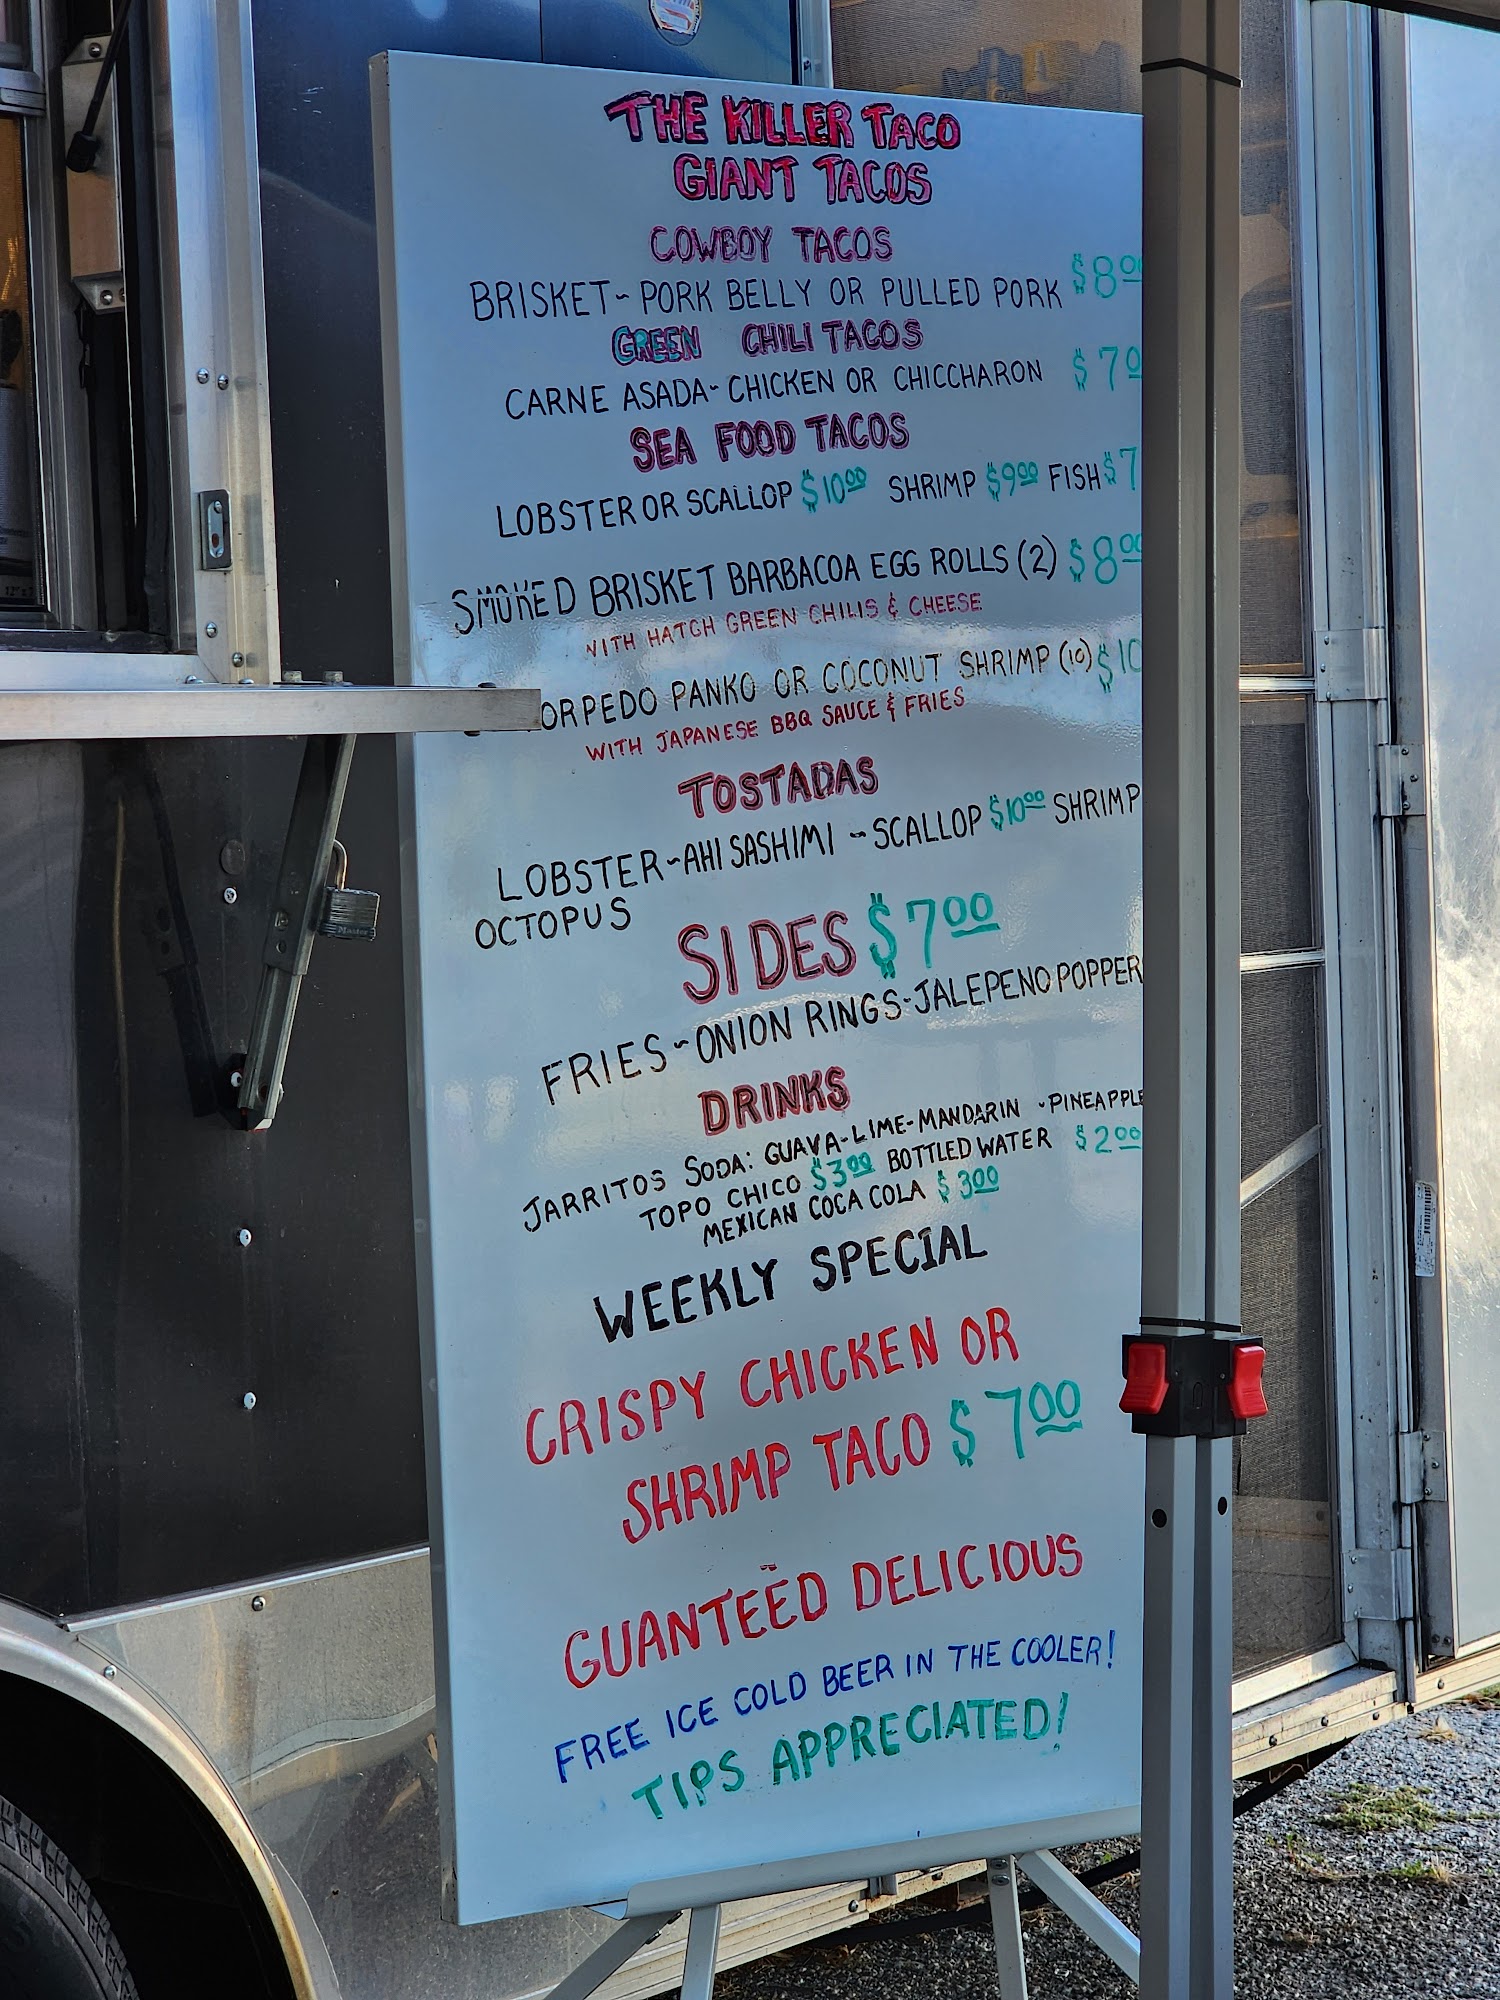 THE KILLER TACO
GIANT TACOS
COWBOY TACOS
BRISKET~PORK BELLY OR PULLED PORK $8⁰⁰
GREEN CHILI TACOS
CARNE ASADA~CHICKEN OR CHICCHARON $7⁰
SEA FOOD TACOS
LOBSTER OR SCALLOP $10⁰⁰ SHRIMP $9⁰⁰ FISH $7
SMOKED BRISKET BARBACOA EGG ROLLS (2) $8⁰⁰
WITH HATCH GREEN CHILIS & CHEESE
ORPEDO PANKO OR COCONUT SHRIMP (10) $10
WITH JAPANESE BBQ SAUCE & FRIES
TOSTADAS
LOBSTER~AHI SASHIMI ~SCALLOP $10⁰⁰ SHRIMP
OCTOPUS
SIDES $7⁰⁰
FRIES~ONION RINGS-JALEPENO POPPER
DRINKS
JARRITOS SODA: GUAVA-LIME-MANDARIN -PINEAPPLE
TOPO CHICO $3⁰⁰ BOTTLED WATER $2⁰⁰
MEXICAN COCA COLA $3⁰⁰
WEEKLY SPECIAL
CRISPY CHICKEN OR
SHRIMP TACO $7⁰⁰
GUANTEED DELICIOUS
FREE ICE COLD BEER IN THE COOLER!
TIPS APPRECIATED!
Master